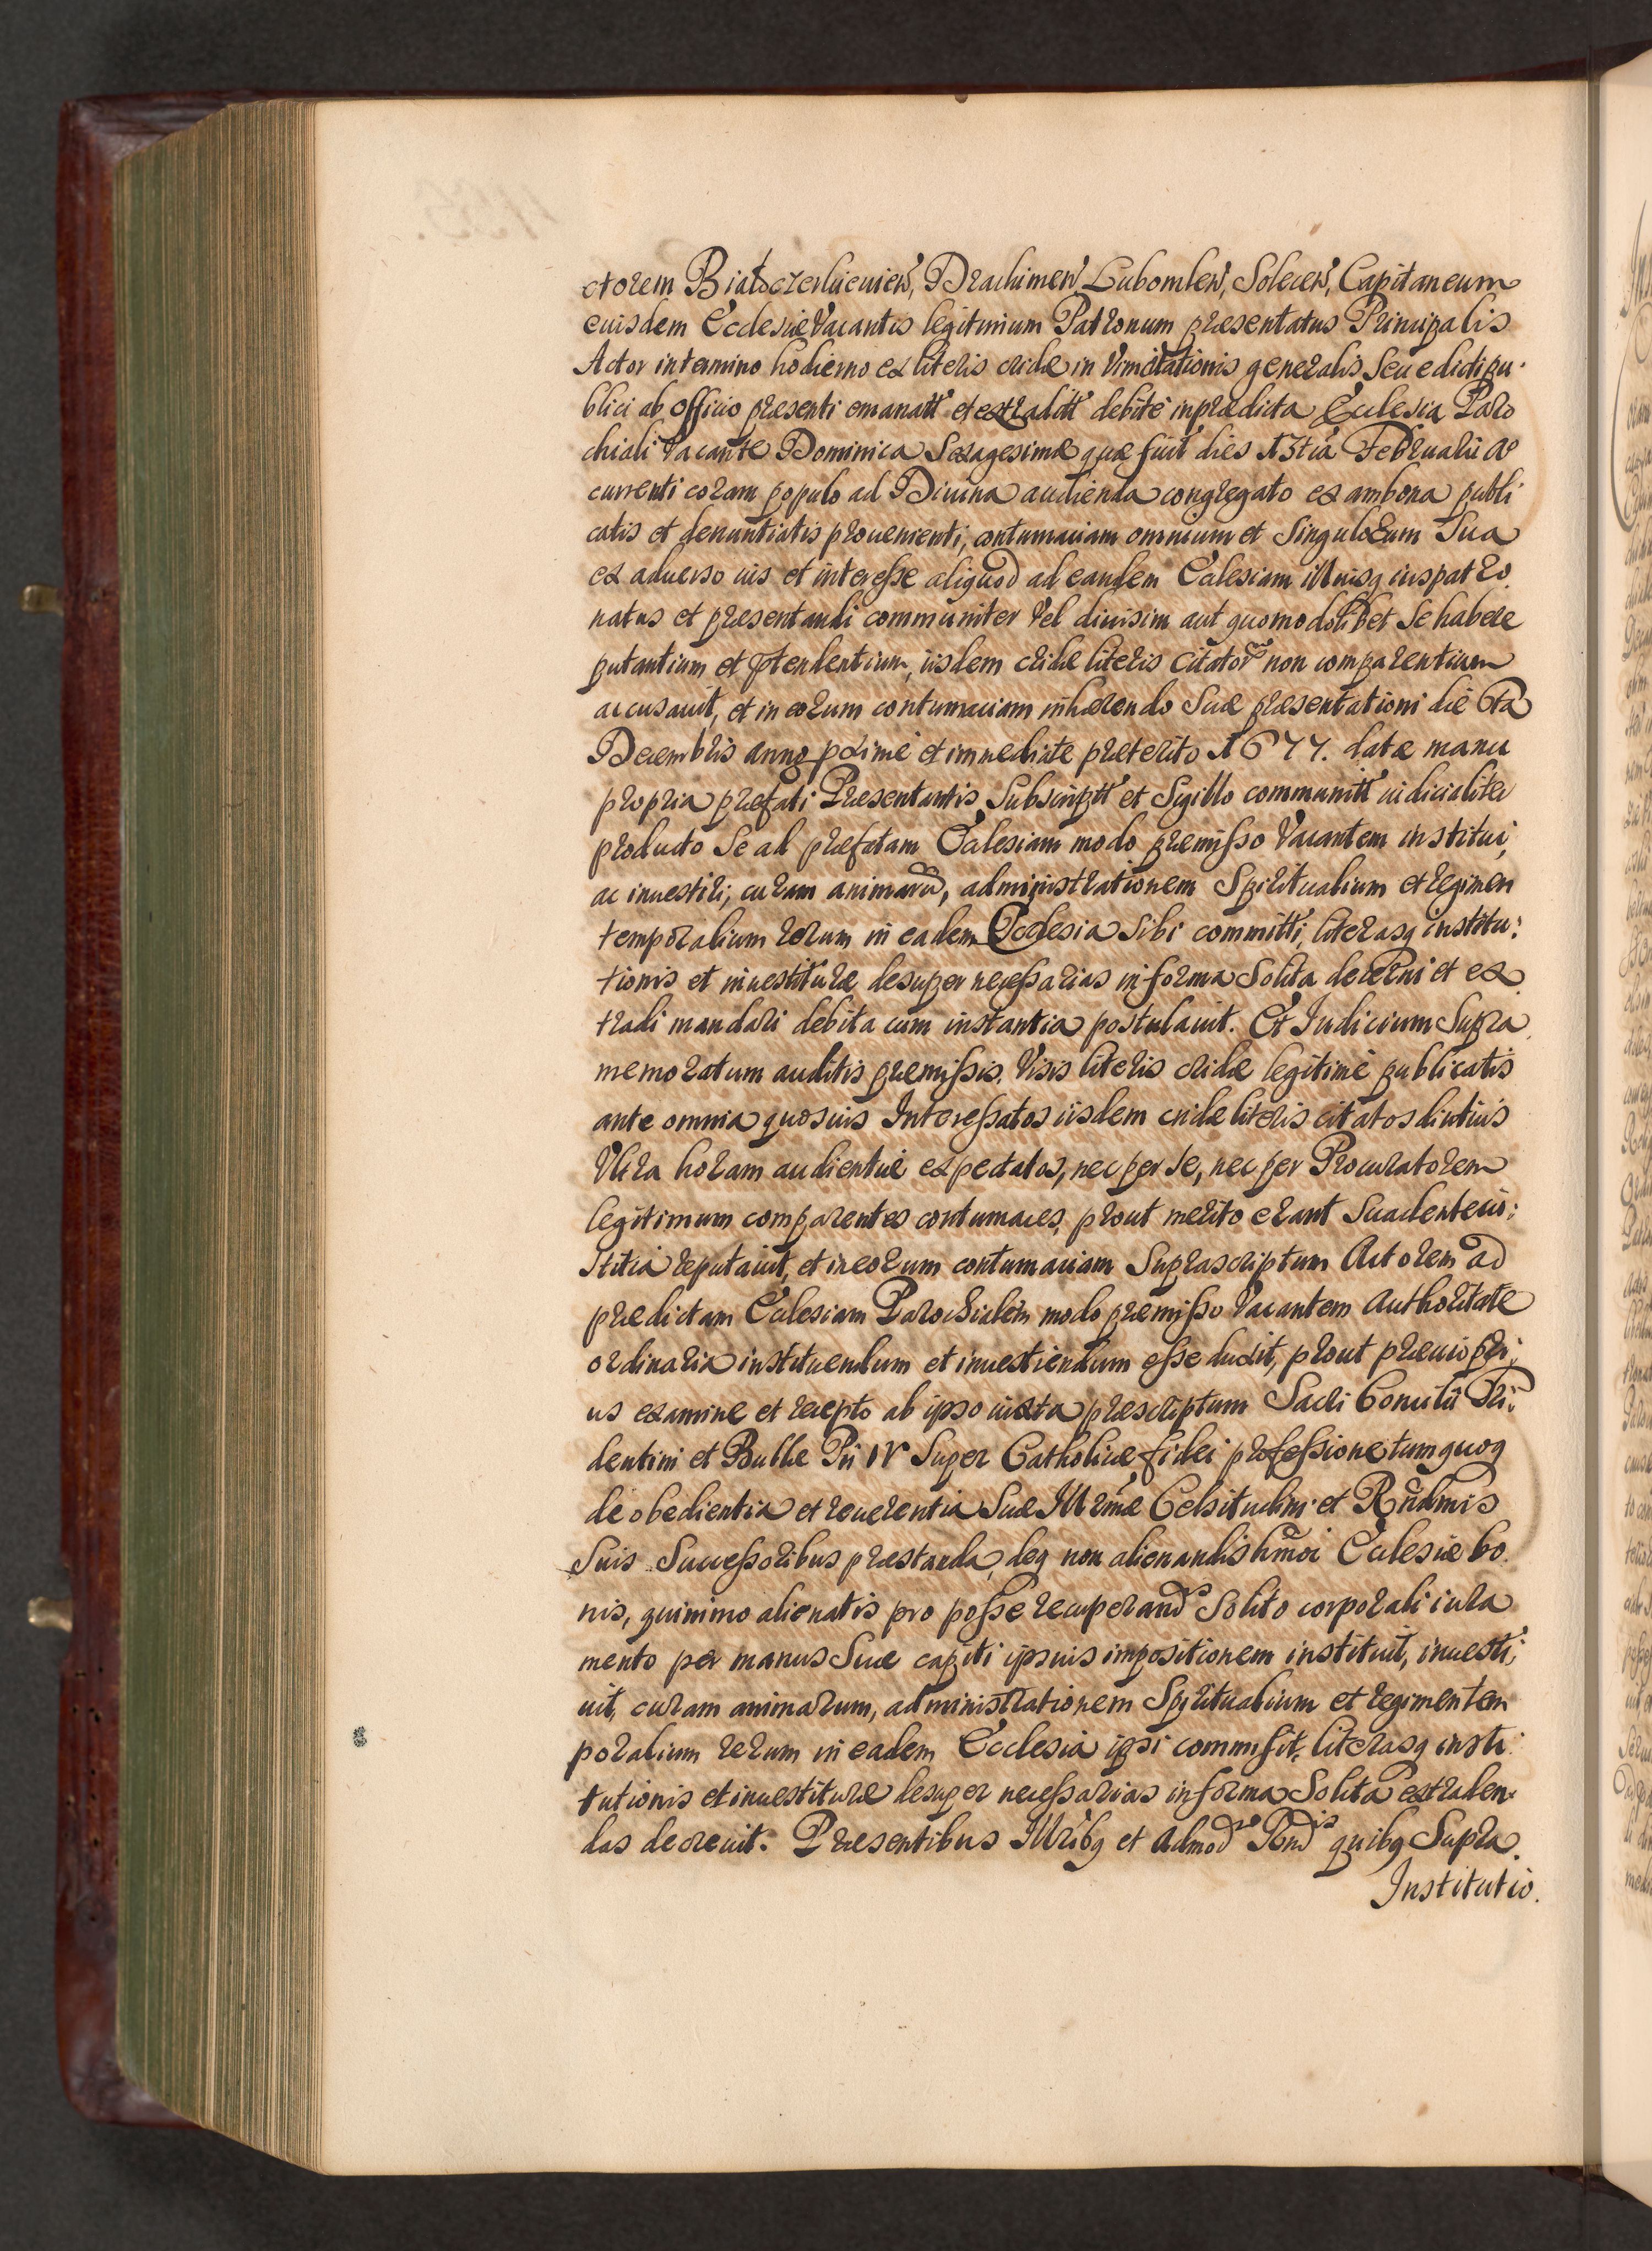 ctorem Białocrerkieuień, Drachimeń, Lubomleń, Soleceń, Capitaneum
euisdem Ecclesiæ Vacantis legitimum Patronum præsentatus Principalis
Actor intermino hodierno ex literis cridæ in Vim citationis generalis Seu edicti pu
blici ab officio præsenti emanatt et extraditt debité inprædicta Ecclesia Paro
chiali Vacante Dominica Sexagesimæ quæ fuit dies 13tia Februarii Ao
currenti coram populo ad Diuina audienda congregato ex ambona publi
catis et denuntiatis prouenienti, contumaciam omnium et Singulorum Sua
ex aduerso ius et interesse aliquod ad eandem Ecclesiam illiusq iuspatro
natus et præsentandi communiter Vel diuisim aut quomodolibet Se habere
putantium et ptendentium, iisdem cridæ literis Citator non comparentium
accusauit, et in eorum contumaciam inhærendo Suæ præsentationi die 6ta
Decembris anno pximé et immediate præterito 1677. datæ manu
propria præfati Præsentantis Subscriptt et Sygillo communitt iudicialiter
producto Se ad præfatam Ecclesiam modo præmisso Vacantem institui,
ac inuestiri, curam animarũ, administrationem Spiritualium et regimen
temporalium rerum in eadem Ecclesia Sibi committi, literasq institu:
tionis et inuestituræ desuper necessarias in forma Solita decerni et ex
tradi mandari debita cum instantia postulauit. Et Iudicium Supra
memoratum auditis præmissis, Visis literis cridæ legitimé publicatis
ante omnia quosuis Interessatos iisdem cridæ literis citatos diutius
Vltra horam audientiæ expectatos, nec per se, nec per Procuratorem
legitimum comparentes contumaces, prout merito erant Suadente iu:
stitia reputauit, et in eorum contumaciam Suprascriptum Actorem ad
prædictam Ecclesiam Parochialem modo præmisso Vacantem Authoritate
ordinaria instituendum et inuestiendum esse duxit, prout præuio pri;
us examine et recepto ab ipso iuxta præscriptum Sacri Concilii Tri:
dentini et Bullæ Pii IV Super Catholicæ fidei professione tum quoq
de obedientia et reuerentia Suæ Illrmæ Celsitudini et Rñdmis
Suis Successoribus præstanda, deq non alienandis hmõi Ecclesiæ bo
nis, quinimo alienatis pro posse recuperandis Solito corporali iura
mento per manus Suæ capiti ipsius impositionem instituit, inuesti;
uit, curam animarum, administrationem Spiritualium et regimen tem
poralium rerum in eadem Ecclesia ipsi commisit, literasq insti
tutionis et inuestituræ desuper necessarias in forma Solita extraden
das decreuit. Præsentibus Illribq et Admod Rnd quibq Supra.
Institutio.